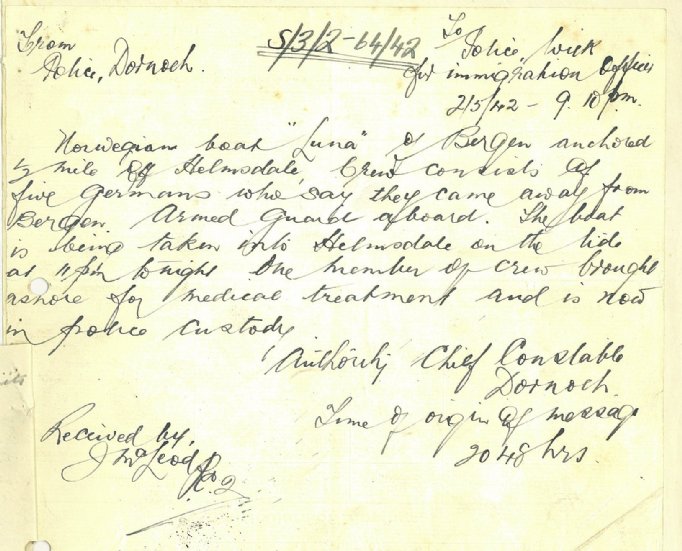 From
Police, Dornoch.
S/3/2-64/42
To
Police Wick
for immigration officer
2/5/42 - 9. 10 pm.
Norwegian boat "Luna" of Bergen anchored
½ mile off Helmsdale, Crew consists of
five Germans who say they came away from
Bergen. Armed guard aboard. The boat
is being taken into Helmsdale on the tide
at 11 pm tonight One member of crew brought
ashore for medical treatment and is now
in police custody
Authority Chief Constable
Dornoch.
Time of origin of message
2048 hrs.
Received by,
J McLeod